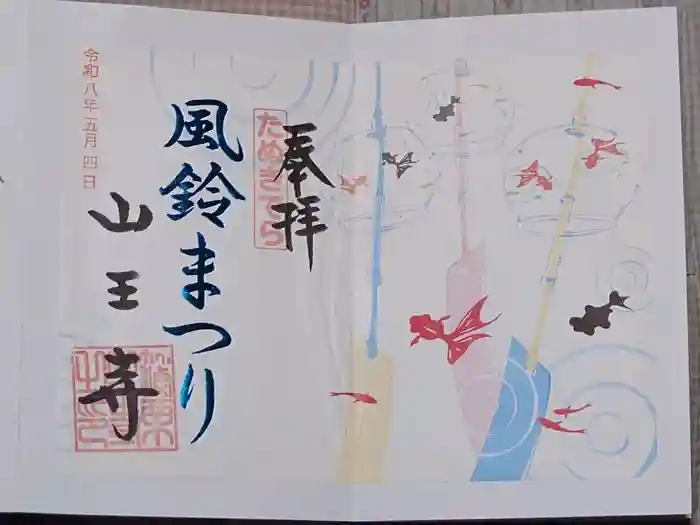 奉拝
たぬきでら
風鈴まつり
山王寺
令和八年五月四日